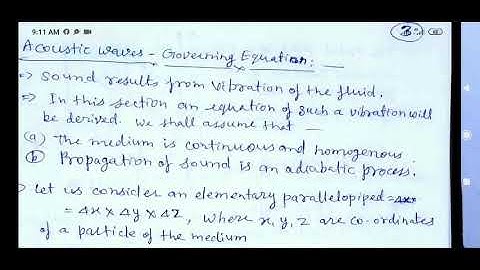 9:11 AM
3
Acoustic waves - Governing Equation: —
⇒ Sound results from vibration of the fluid.
⇒ In this section an equation of such a vibration will
be derived. We shall assume that —
(a) The medium is continuous and homogenous.
(b) Propagation of sound is an adiabatic process.
Let us consider an elementary parallelopiped = Δx
= Δx × Δy × Δz, where x, y, z are co-ordinates
of a particle of the medium